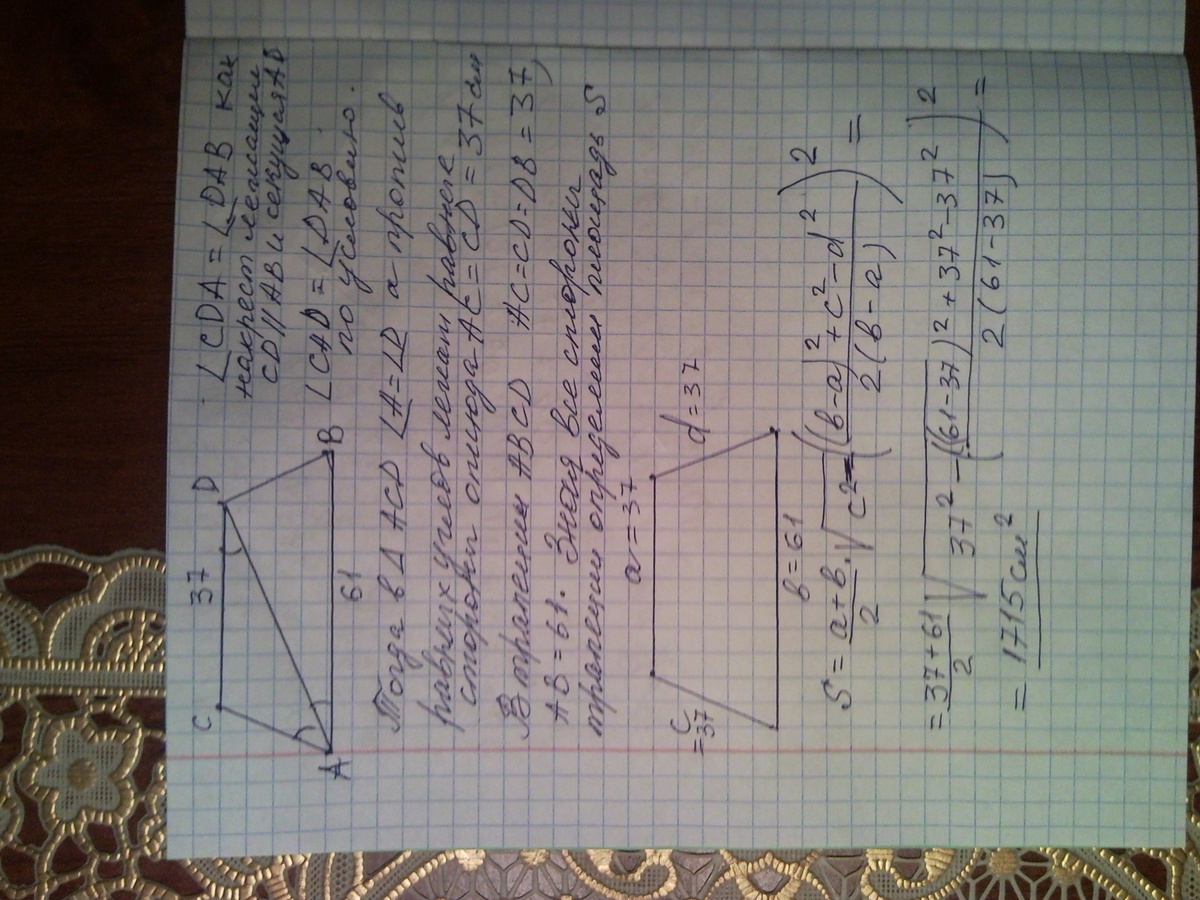 C 37 D
A 61 B
∠CDA = ∠DAB как
накрест лежащие
CD∥AB и секущая AD
∠CAD = ∠DAB
по условию.
Тогда в Δ ACD ∠A = ∠D а против
равных углов лежат равные
стороны отсюда AC = CD = 37 см
В трапеции ABCD AC = CD = DB = 37,
AB = 61. Зная все стороны
трапеции определим площадь S
a = 37
c = 37
d = 37
b = 61
S = (a+b)/2 · √(c² − (((b−a)² + c² − d²)/(2(b−a)))²) =
= (37+61)/2 √(37² − (((61−37)² + 37² − 37²)/(2(61−37)))²) =
= 1715 см²